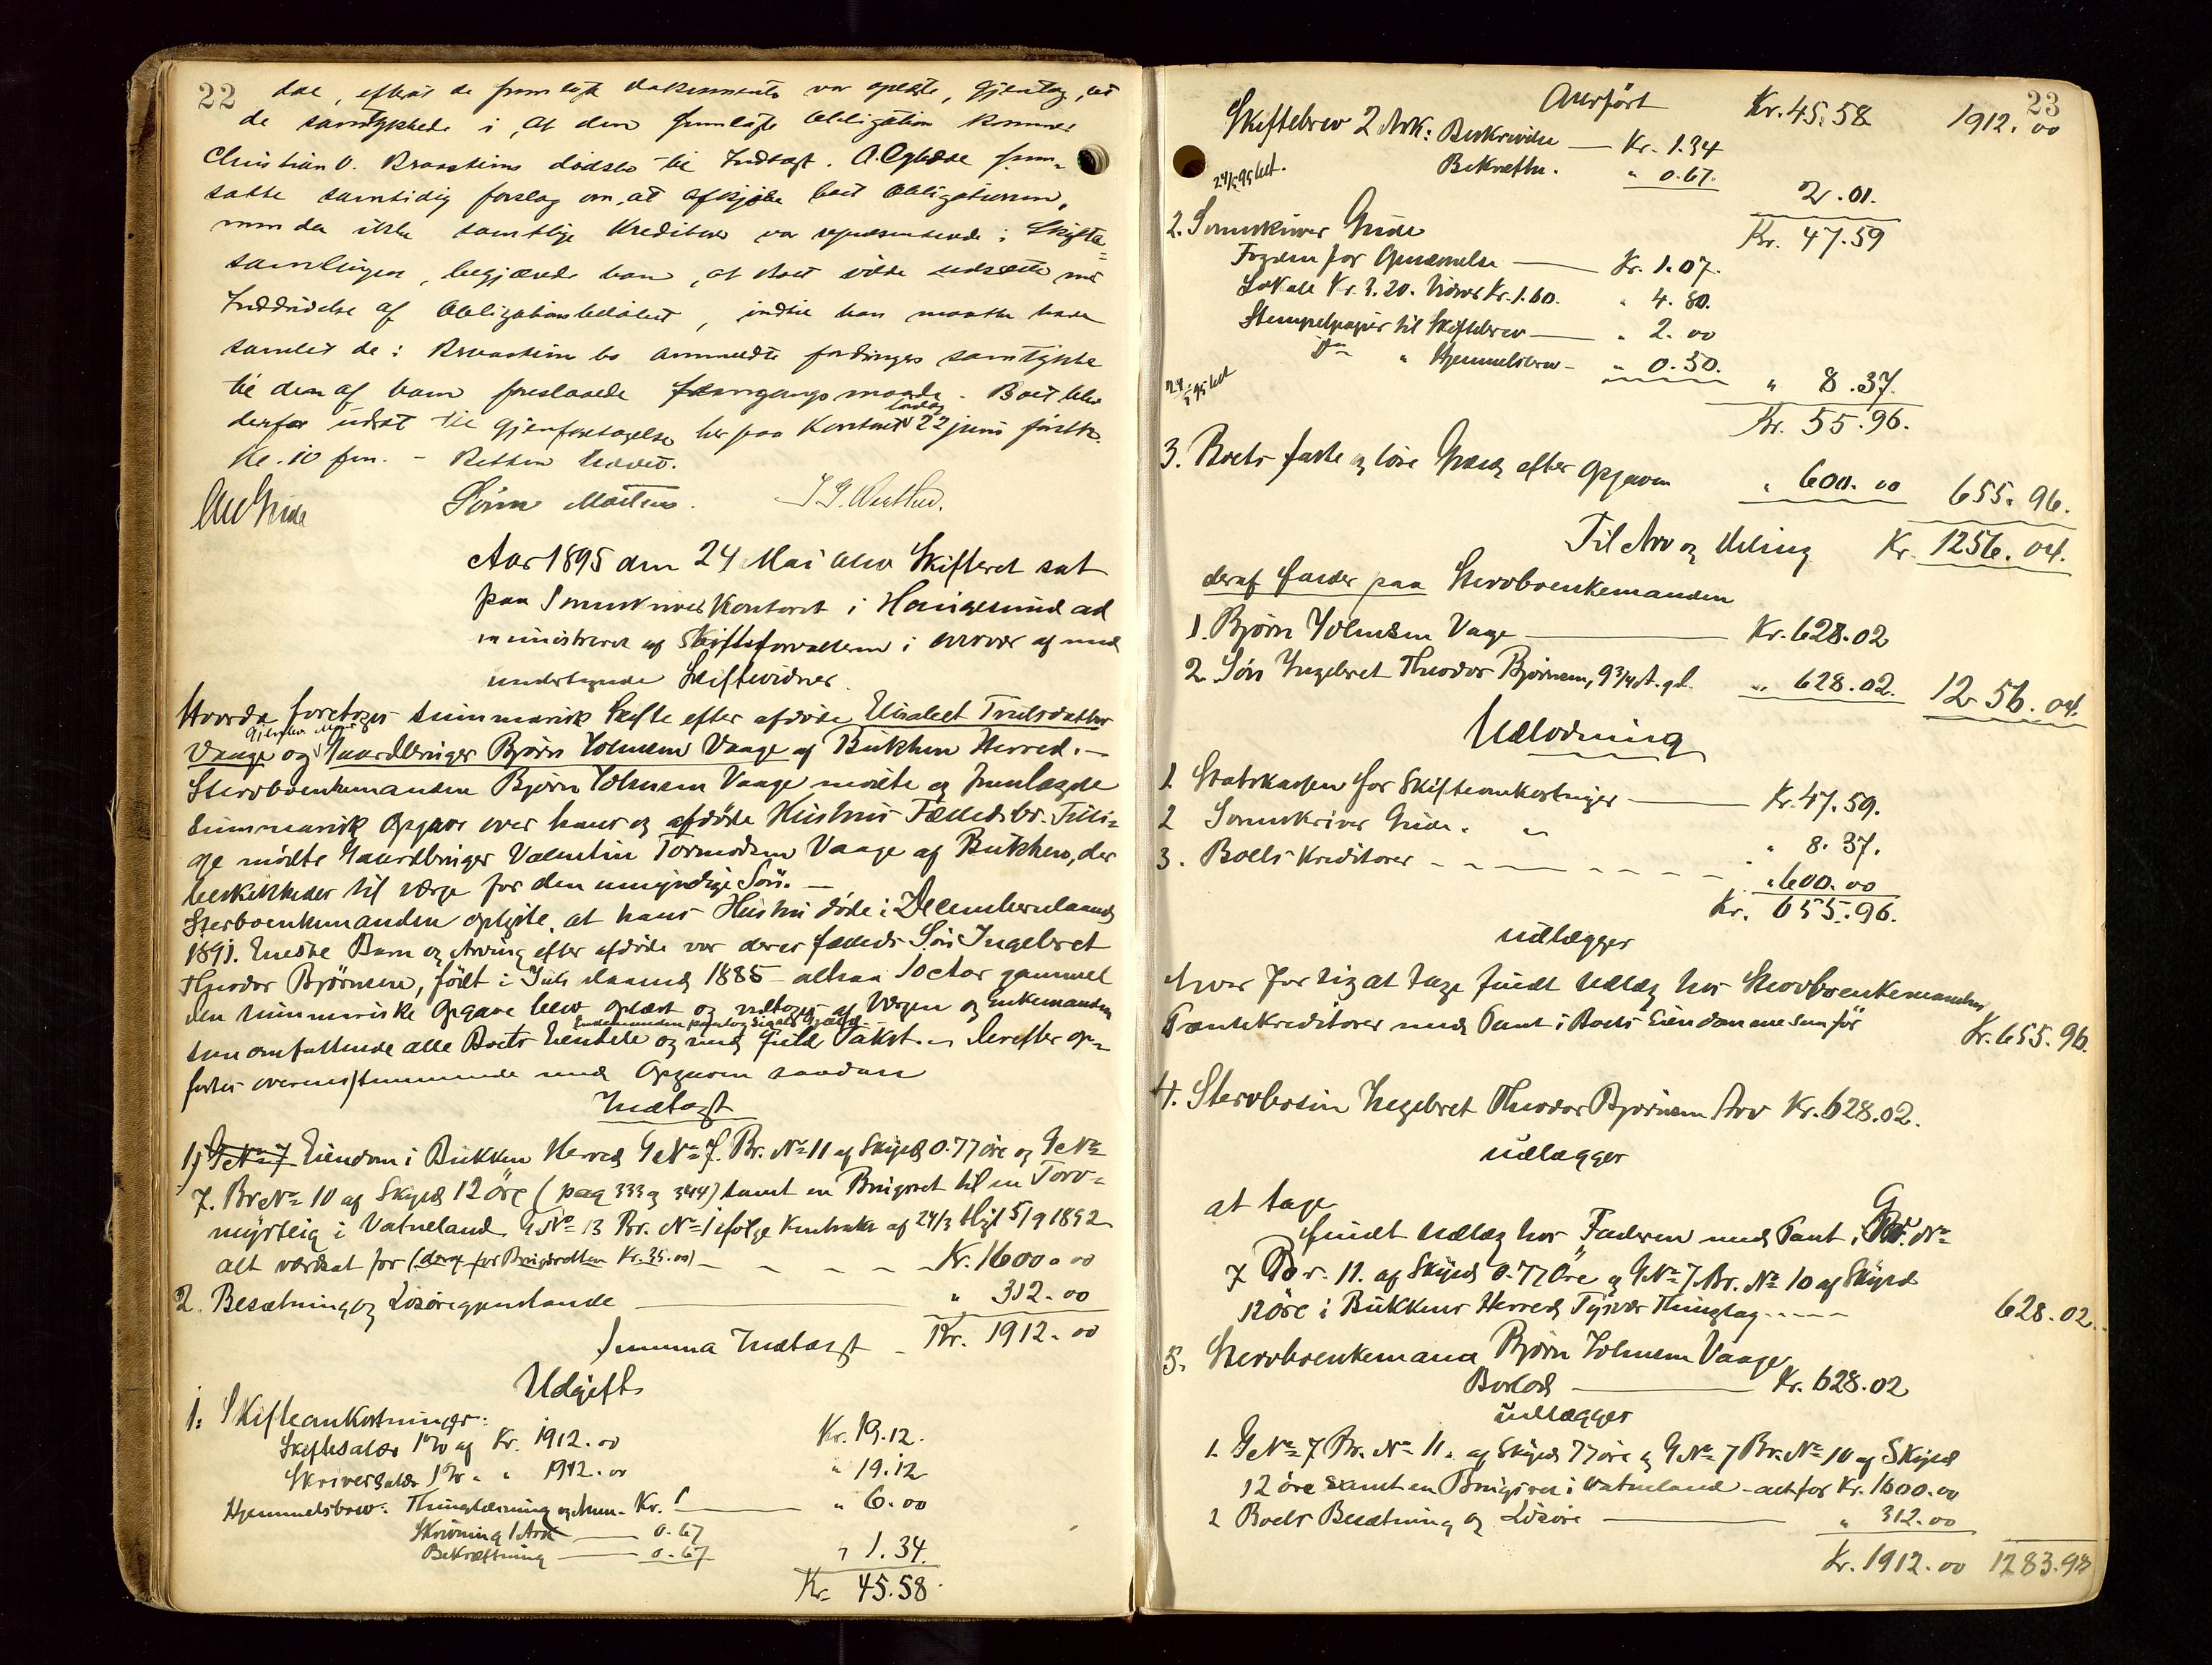 22
dae, efterat de fremlagte Dokumenter var oplæste, gjentog, at
de samtykkede i, at den fremlagte Obligation kommer
Christian O. Braasteins dødsbo til Indtægt. O. frem=
satte samtidig forslag om, at afkjøbe boet Obligationen,
men da ikke samtlige Kreditorer var repræsenterede i Skifte=
samlingen, begjærede han, at boet vilde udsætte med
Inddrivelse af Obligationsbeløbet, indtil han maatte have
samlet de i Braastein bo anmeldte fordringers samtykke
til den af ham foreslaaede fremgangsmaade. Boet blev
derfor udsat til Gjenforetagelse her paa Kontoret Lørdag 22 juni førstk.
Kl. 10 fm. - Retten hævet.
Gude Sören Mortens. J. G.
Aar 1895 den 24 Mai blev Skifteret sat
paa Sorenskriverkontoret i Haugesund ad
ministreret af Skifteforvalteren i overvær af med
undertegnede Skiftevidner.
Hvorda foretoges summarisk Skifte efter afdøde Elisabet Truls datter
Vaage og Gjenlev. Mand Gaardbruger Bjørn Johnsen Vaage af Bukken Herred. -
Stervboenkemanden Bjørn Johnsen Vaage mødte og fremlagde
summarisk Opgave over hans og afdøde Hustrus Fællesbo. Tilli=
ge mødte Gaardbruger Valentin Tormodsen Vaage af Bukken, der
beskikkedes til Værge for den umyndige Søn. -
Sterboenkemanden oplyste, at hans Hustru døde i Decembermaaned
1891. Eneste Barn og Arving efter afdøde var deres fælleds Søn Ingebret
Theodor Bjørnsen, født i Juli Maaned 1885 - altsaa 10 Aar gammel
Den summariske Opgave blev oplæst og vedtoges af Værgen og Enkemanden
Enkemanden paatog sig al Gjæld -
som omfattende alle Boets Eiendele og med fuld Takst. - Derefter op=
førtes overensstemmende med Opgaven saadan
Indtægt
1) G No 7 Eiendom i Bukken Herred G No 7. Br. No 11 af Skyld 0.77 øre og G No
7. Br No 10 af Skyld 12 öre (pag 333 og 344) samt en Brugsret til en Torv=
myrteig i Vatneland G No 13 Br. No 1 ifølge Kontrakt af 24/3 thgl 5/9 1892
alt værdsat for (deraf for Brugsretten Kr. 35.00) - Kr. 1600.00
2. Besætning og Løsøregjenstande " 312.00
Summa Indtægt - Kr. 1912.00
Udgift
1: Skifteomkostninger:
Skiftesalær 1% af Kr. 1912.00 Kr. 19.12.
Skriversalær 1% " " 1912.00 " 19.12
Hjemmelsbrev: Thinglæsning og Anm. Kr. 1 " 6.00
Skrivning 1 Ark 0.67
Bekræftning 0.67 " 1.34.
Kr. 45.58.
23
Overført Kr. 45.58 1912.00
Skiftebrev 2 Ark: Beskrivelse Kr. 1.34
Bekræftn. " 0.67. 2.01.
24/5 95 bet. Kr. 47.59
2. Sorenskriver Gude
Fogden for Opnævnelse Kr. 1.07.
Lokale Kr. 3.20. Vidner Kr. 1.60. " 4.80.
Stempelpapir til Skiftebrev " 2.00
Do " Hjemmelsbrev " 0.50. " 8.37.
24/5 95 bet Kr. 55.96.
3. Boets faste og løse Gjæld efter Opgaven " 600.00 655.96.
Til Arv og Deling Kr. 1256.04.
deraf falder paa Stervboenkemanden
1. Bjørn Johnsen Vaage Kr. 628.02
2. Søn Ingebret Theodor Bjørnsen, 9 3/4 A. gl. " 628.02. 1256.04.
Udlodning
1. Statskassen for Skifteomkostninger Kr. 47.59.
2 Sorenskriver Gude " 8.37.
3. Boets Kreditorer " 600.00
Kr. 655.96.
udlægges
hver for sig at tage fuldt Udlæg hos Stervboenkemanden
Pantekreditorer med Pant i Boets Eiendomme som før Kr. 655.96.
4. Stervbosøn Ingebret Theodor Bjørnsen Arv Kr. 628.02.
udlægges
at tage
fuldt Udlæg hos Faderen med Pant i G No
7 Br. 11. af Skyld 0.77 Øre og G No 7 Br. No 10 af Skyld
12 Øre i Bukkens Herred Tysvær Thinglag ----- 628.02.
5. Stervboenkemand Bjørn Johnsen Vaage
Boslod Kr. 628.02
udlægges
1. G No 7 Br. No 11. af Skyld 77 øre og G No 7 Br. No 10 af Skyld
12 øre samt en Brugsret i Vatneland - alt for Kr. 1600.00
2 Boets Besætning og Løsøre " 312.00
Kr. 1912.00 1283.98